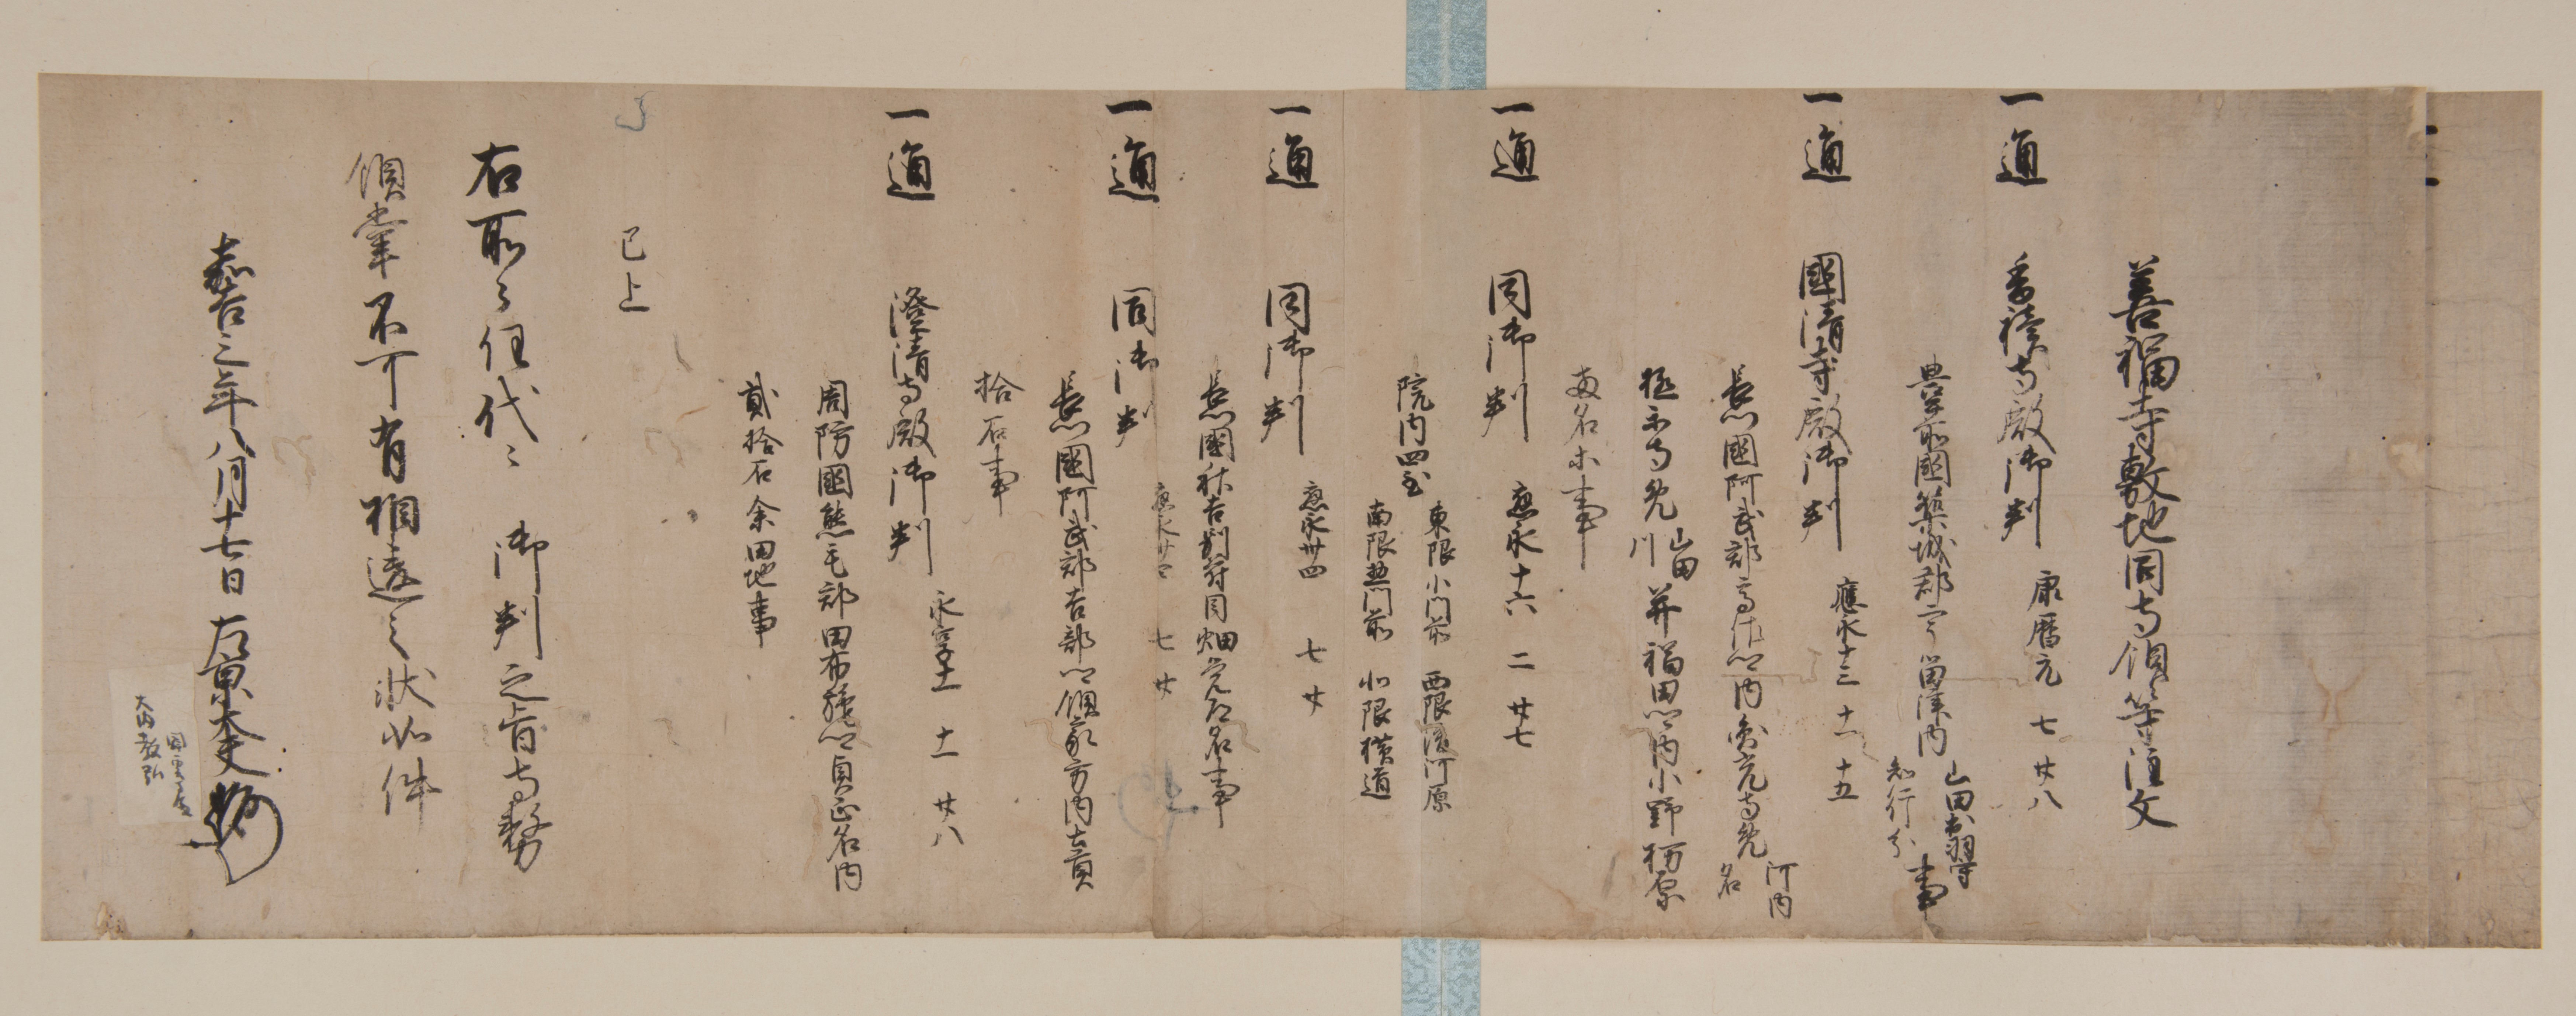 善福寺敷地同寺領等注文
一通 香積寺殿御判 康暦元 七 廿八
豊前國築城郡宇留津内 山田 知行分 事
一通 國清寺殿御判 應永十三 十一 十五
長國阿武郡高佐郷内 寺免 河内名
極寺免 山田 川 并福田郷内小野 柳原
両名等事
一通 同御判 應永十六 二 廿七
院内四至 東限小門前 西限後河原
南限惣門前 北限横道
一通 同御判 應永卅四 七 廿
長國秋吉別符同畑 名事
一通 同御判 應永卅四 七 廿
長國阿武郡吉部郷領家方内土貢
拾石事
一通 澄清寺殿御判 永享十一 十一 廿八
周防國熊毛郡田布施郷貞正名内
貳拾石余田地事
已上
右所々任代々 御判之旨寺務
領掌不可有相違之状如件
嘉吉三年八月十七日 左京大夫
大内教弘